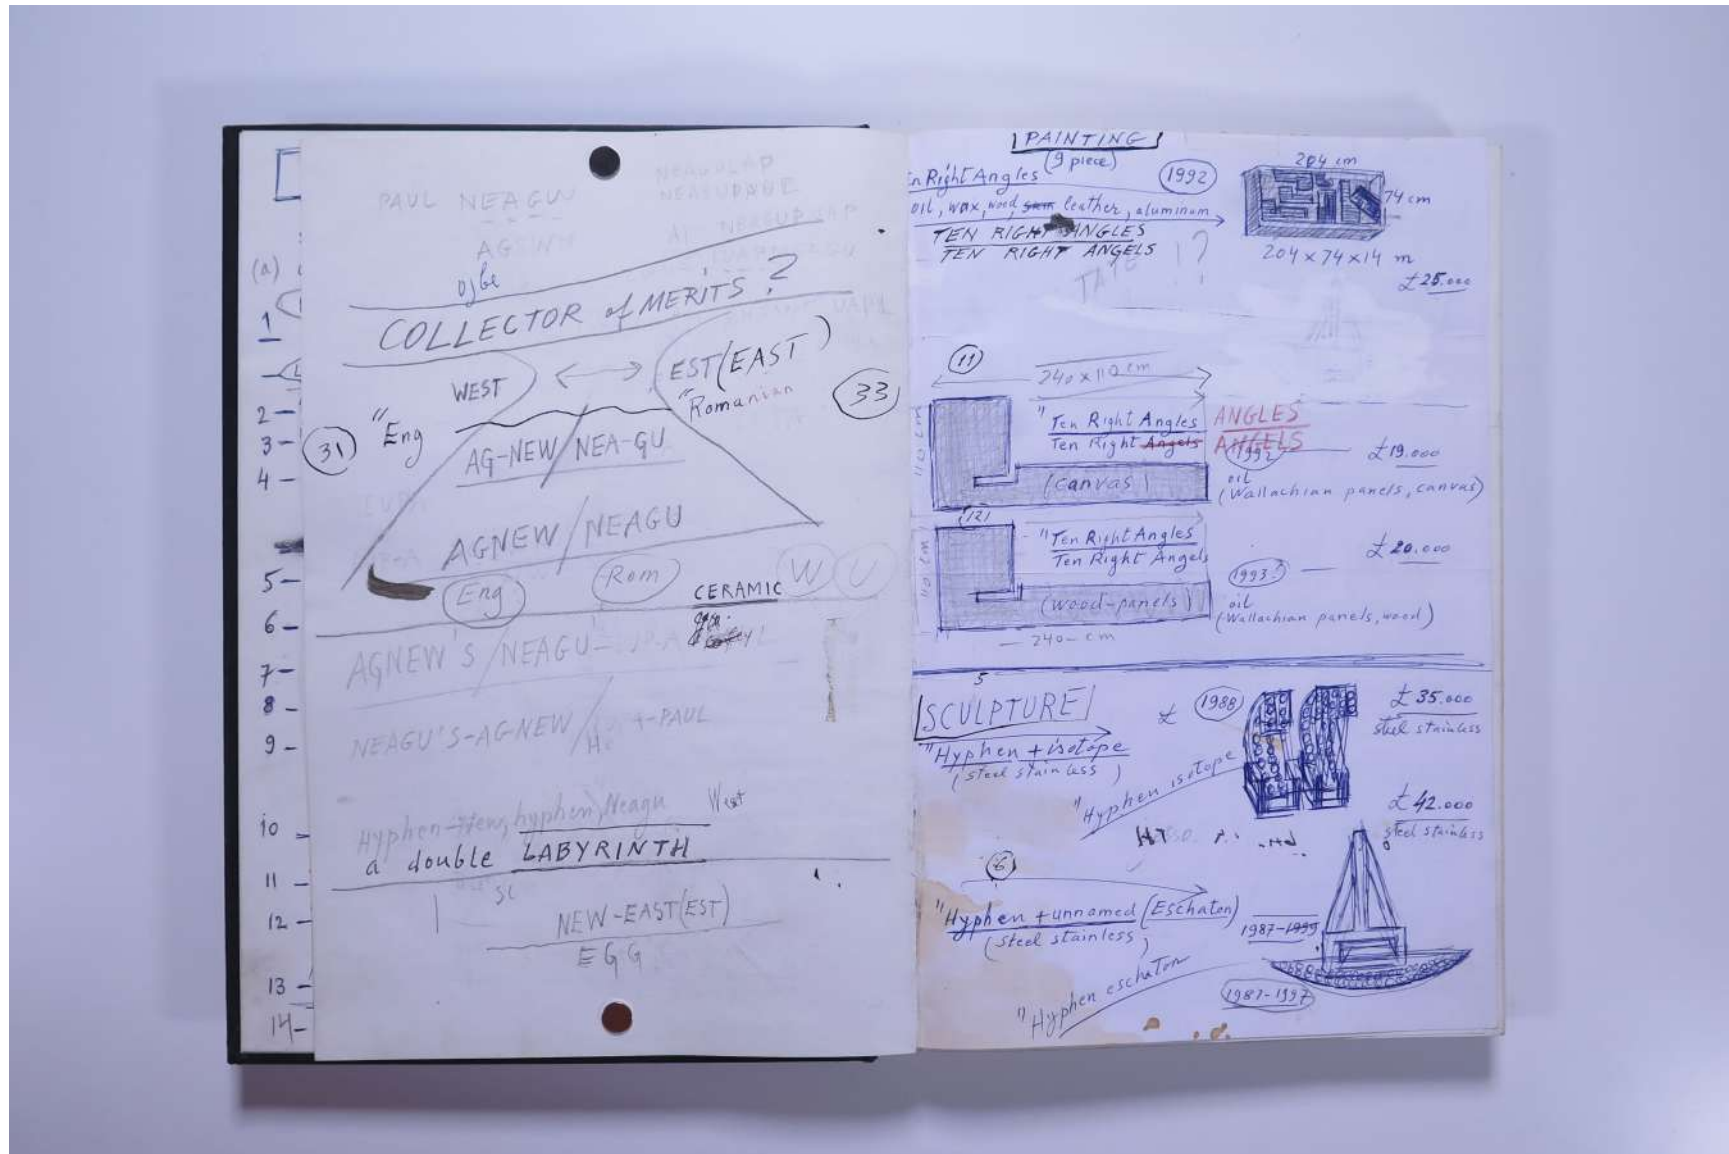 (a)
1
2 -
3 -
4 -
5 -
6 -
7 -
8 -
9 -
10
11
12 -
13 -
14 -
PAUL NEAGU
COLLECTOR of MERITS?
WEST
EST (EAST)
31
"Eng
"Romanian
33
AG-NEW / NEA-GU
AGNEW / NEAGU
Eng
Rom
CERAMIC
W U
AGNEW'S / NEAGU
NEAGU'S-AGNEW / -PAUL
Hyphen-New, hyphen, Neagu West
a double LABYRINTH
NEW-EAST (EST)
EGG
PAINTING
(9 piece)
n Right Angles
1992
oil, wax, wood, leather, aluminum
TEN RIGHT ANGLES
TEN RIGHT ANGELS
TATE !?
204 cm
74 cm
204 x 74 x 14 m
£25.000
11
240 x 110 cm
110 cm
"Ten Right Angles ANGLES
Ten Right Angels ANGELS
1992
£19.000
(canvas)
oil
(Wallachian panels, canvas)
12
110 cm
"Ten Right Angles
Ten Right Angels
£20.000
1993?
(wood-panels)
oil
(Wallachian panels, wood)
240 - cm
5
SCULPTURE
£
1988
£35.000
steel stainless
"Hyphen + isotope
(steel stainless)
"Hyphen isotope
£42.000
steel stainless
6
"Hyphen + unnamed (Eschaton)
(steel stainless)
1987-1995
"Hyphen eschaton
1987-1997